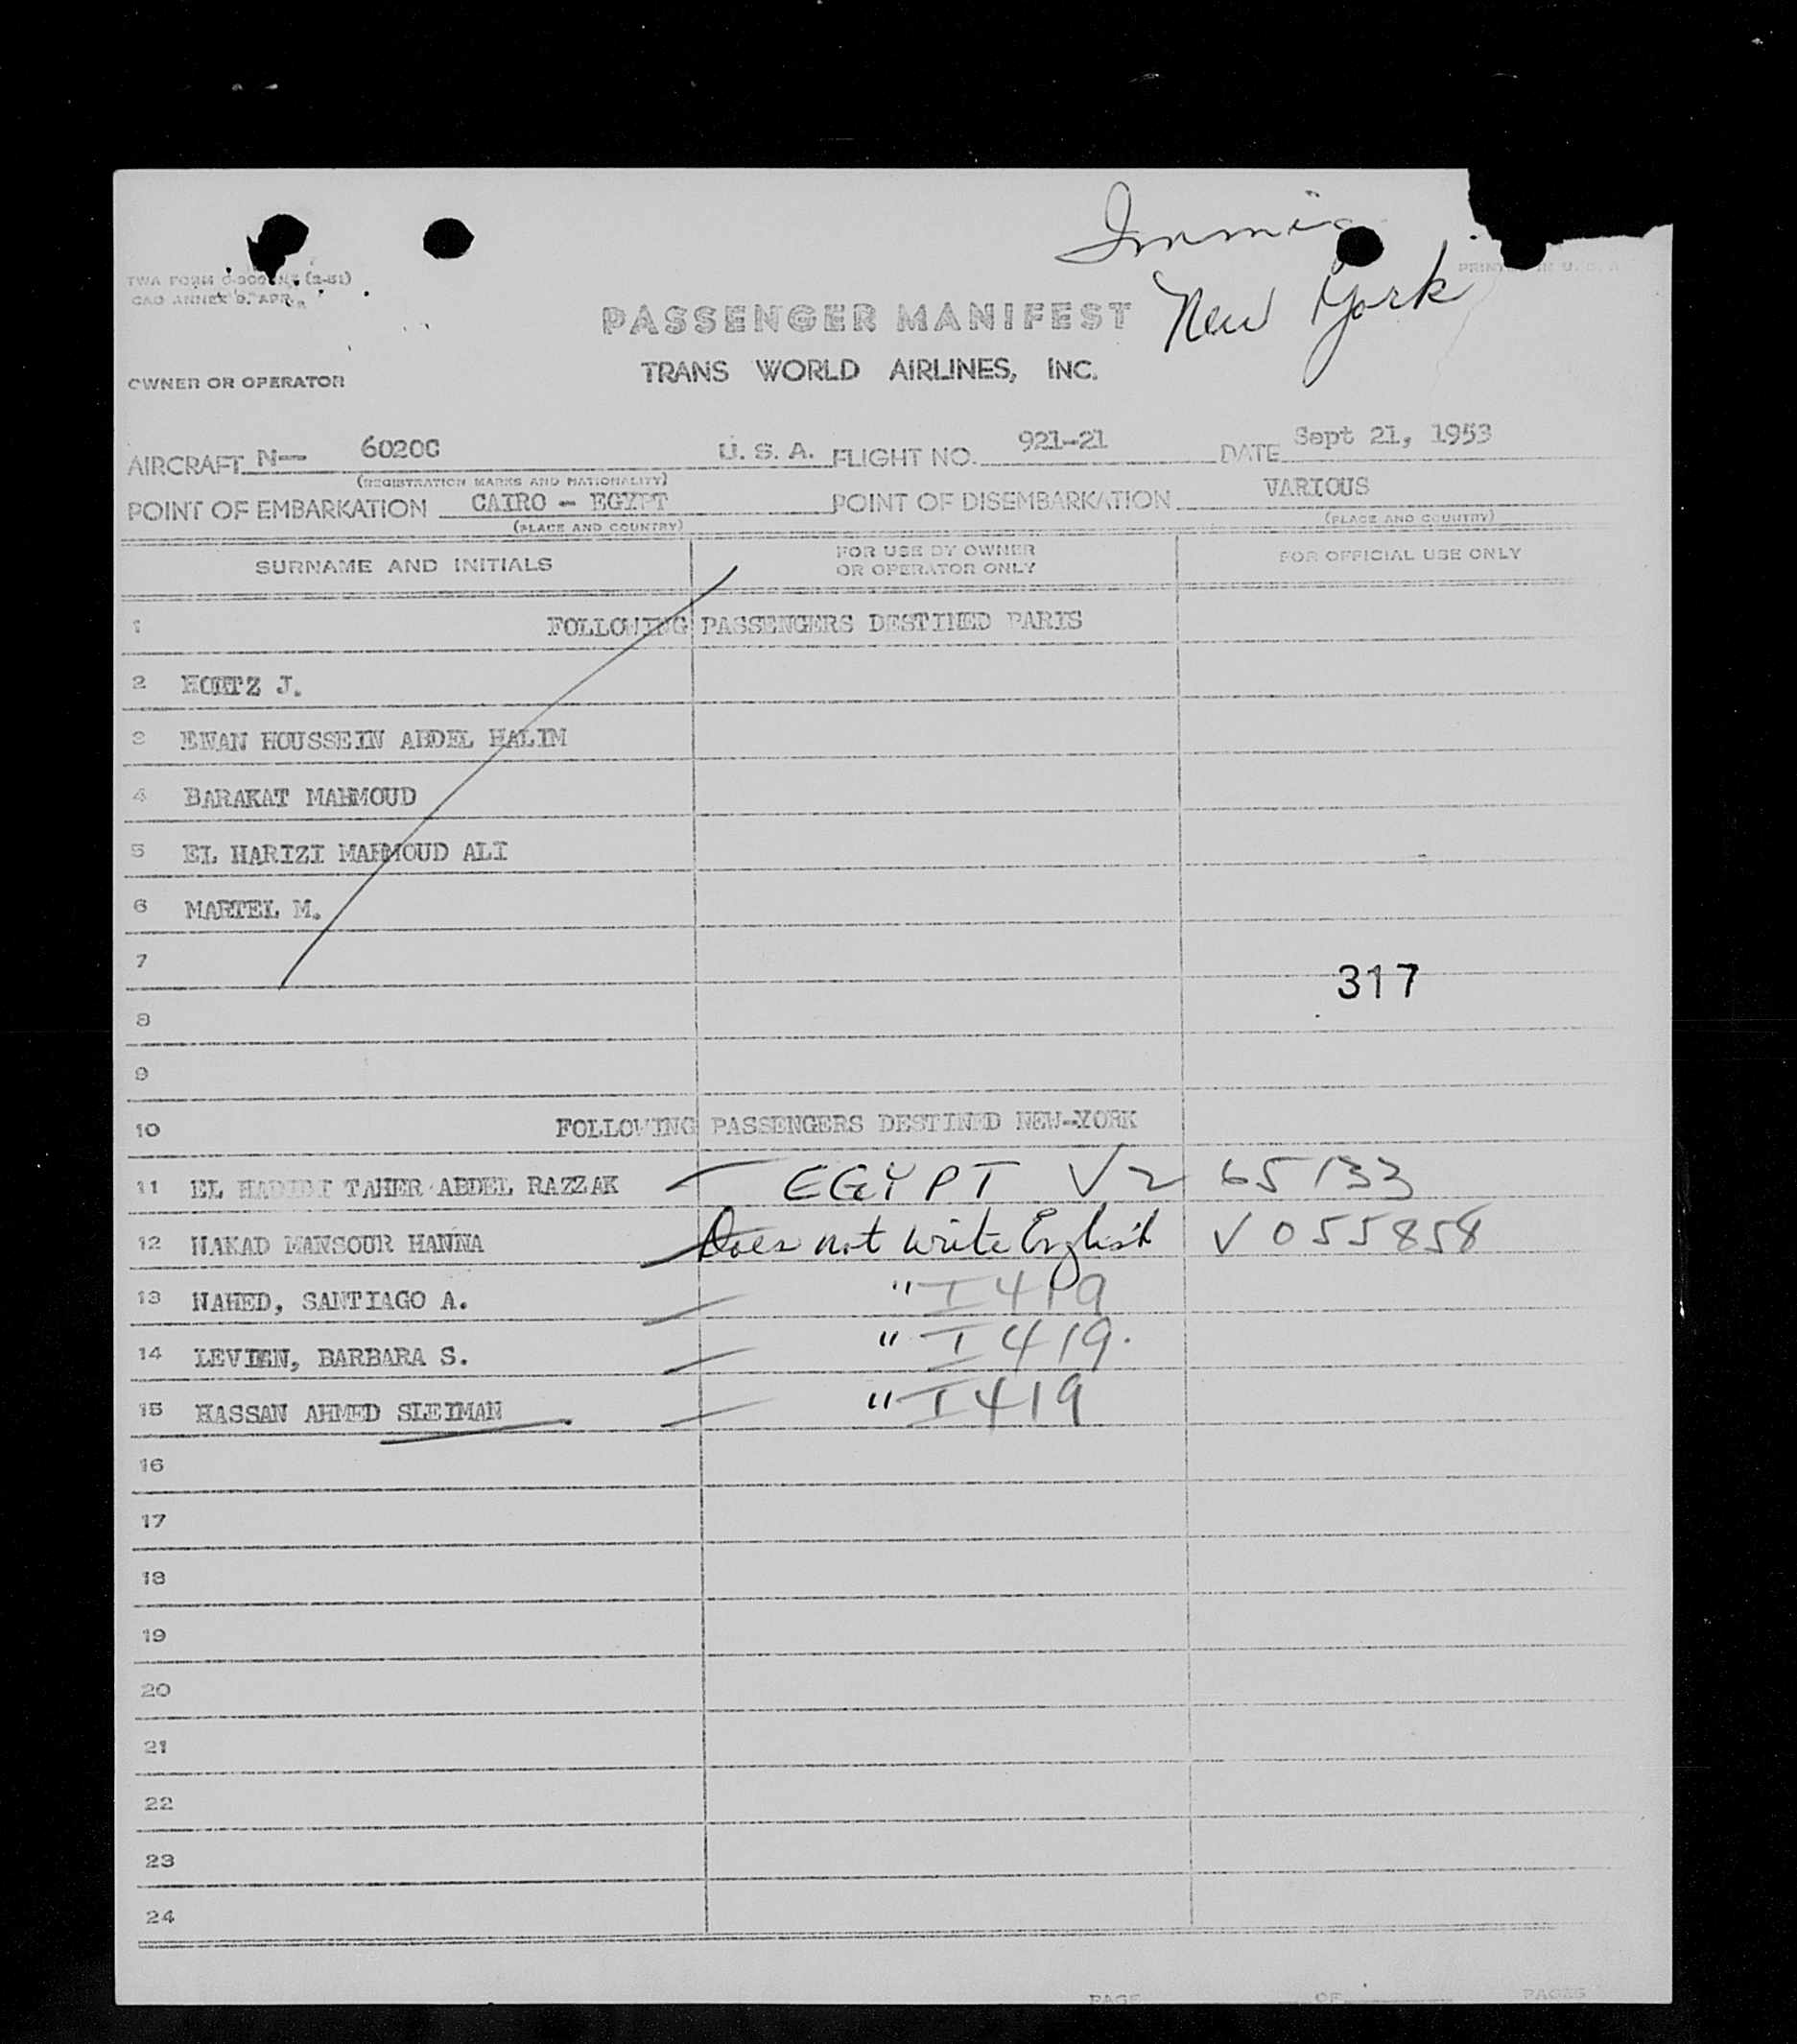 Immig
New York
TWA FORM (2-51)
CAO ANNEX 9, APR.
PRINTED IN U. S. A
PASSENGER MANIFEST
OWNER OR OPERATOR TRANS WORLD AIRLINES, INC.
AIRCRAFT N— 6020C U. S. A. FLIGHT NO. 921-21 DATE Sept 21, 1953
(REGISTRATION MARKS AND NATIONALITY)
POINT OF EMBARKATION CAIRO - EGYPT POINT OF DISEMBARKATION VARIOUS
(PLACE AND COUNTRY) (PLACE AND COUNTRY)
SURNAME AND INITIALS FOR USE BY OWNER OR OPERATOR ONLY FOR OFFICIAL USE ONLY
1 FOLLOWING PASSENGERS DESTINED PARIS
2 J.
3 HOUSSEIN ABDEL HALIM
4 BARAKAT MAHMOUD
5 EL HARIZI MAHMOUD ALI
6 MARTEL M.
7
317
8
9
10 FOLLOWING PASSENGERS DESTINED NEW-YORK
11 EL HADIDI TAHER ABDEL RAZZAK EGYPT V2 65133
12 NAKAD MANSOUR HANNA Does not write English V 055858
13 NAHED, SANTIAGO A. " I 419
14 LEVIEN, BARBARA S. " I 419.
15 HASSAN AHMED SLEIMAN " I 419
16
17
18
19
20
21
22
23
24
PAGE OF PAGES